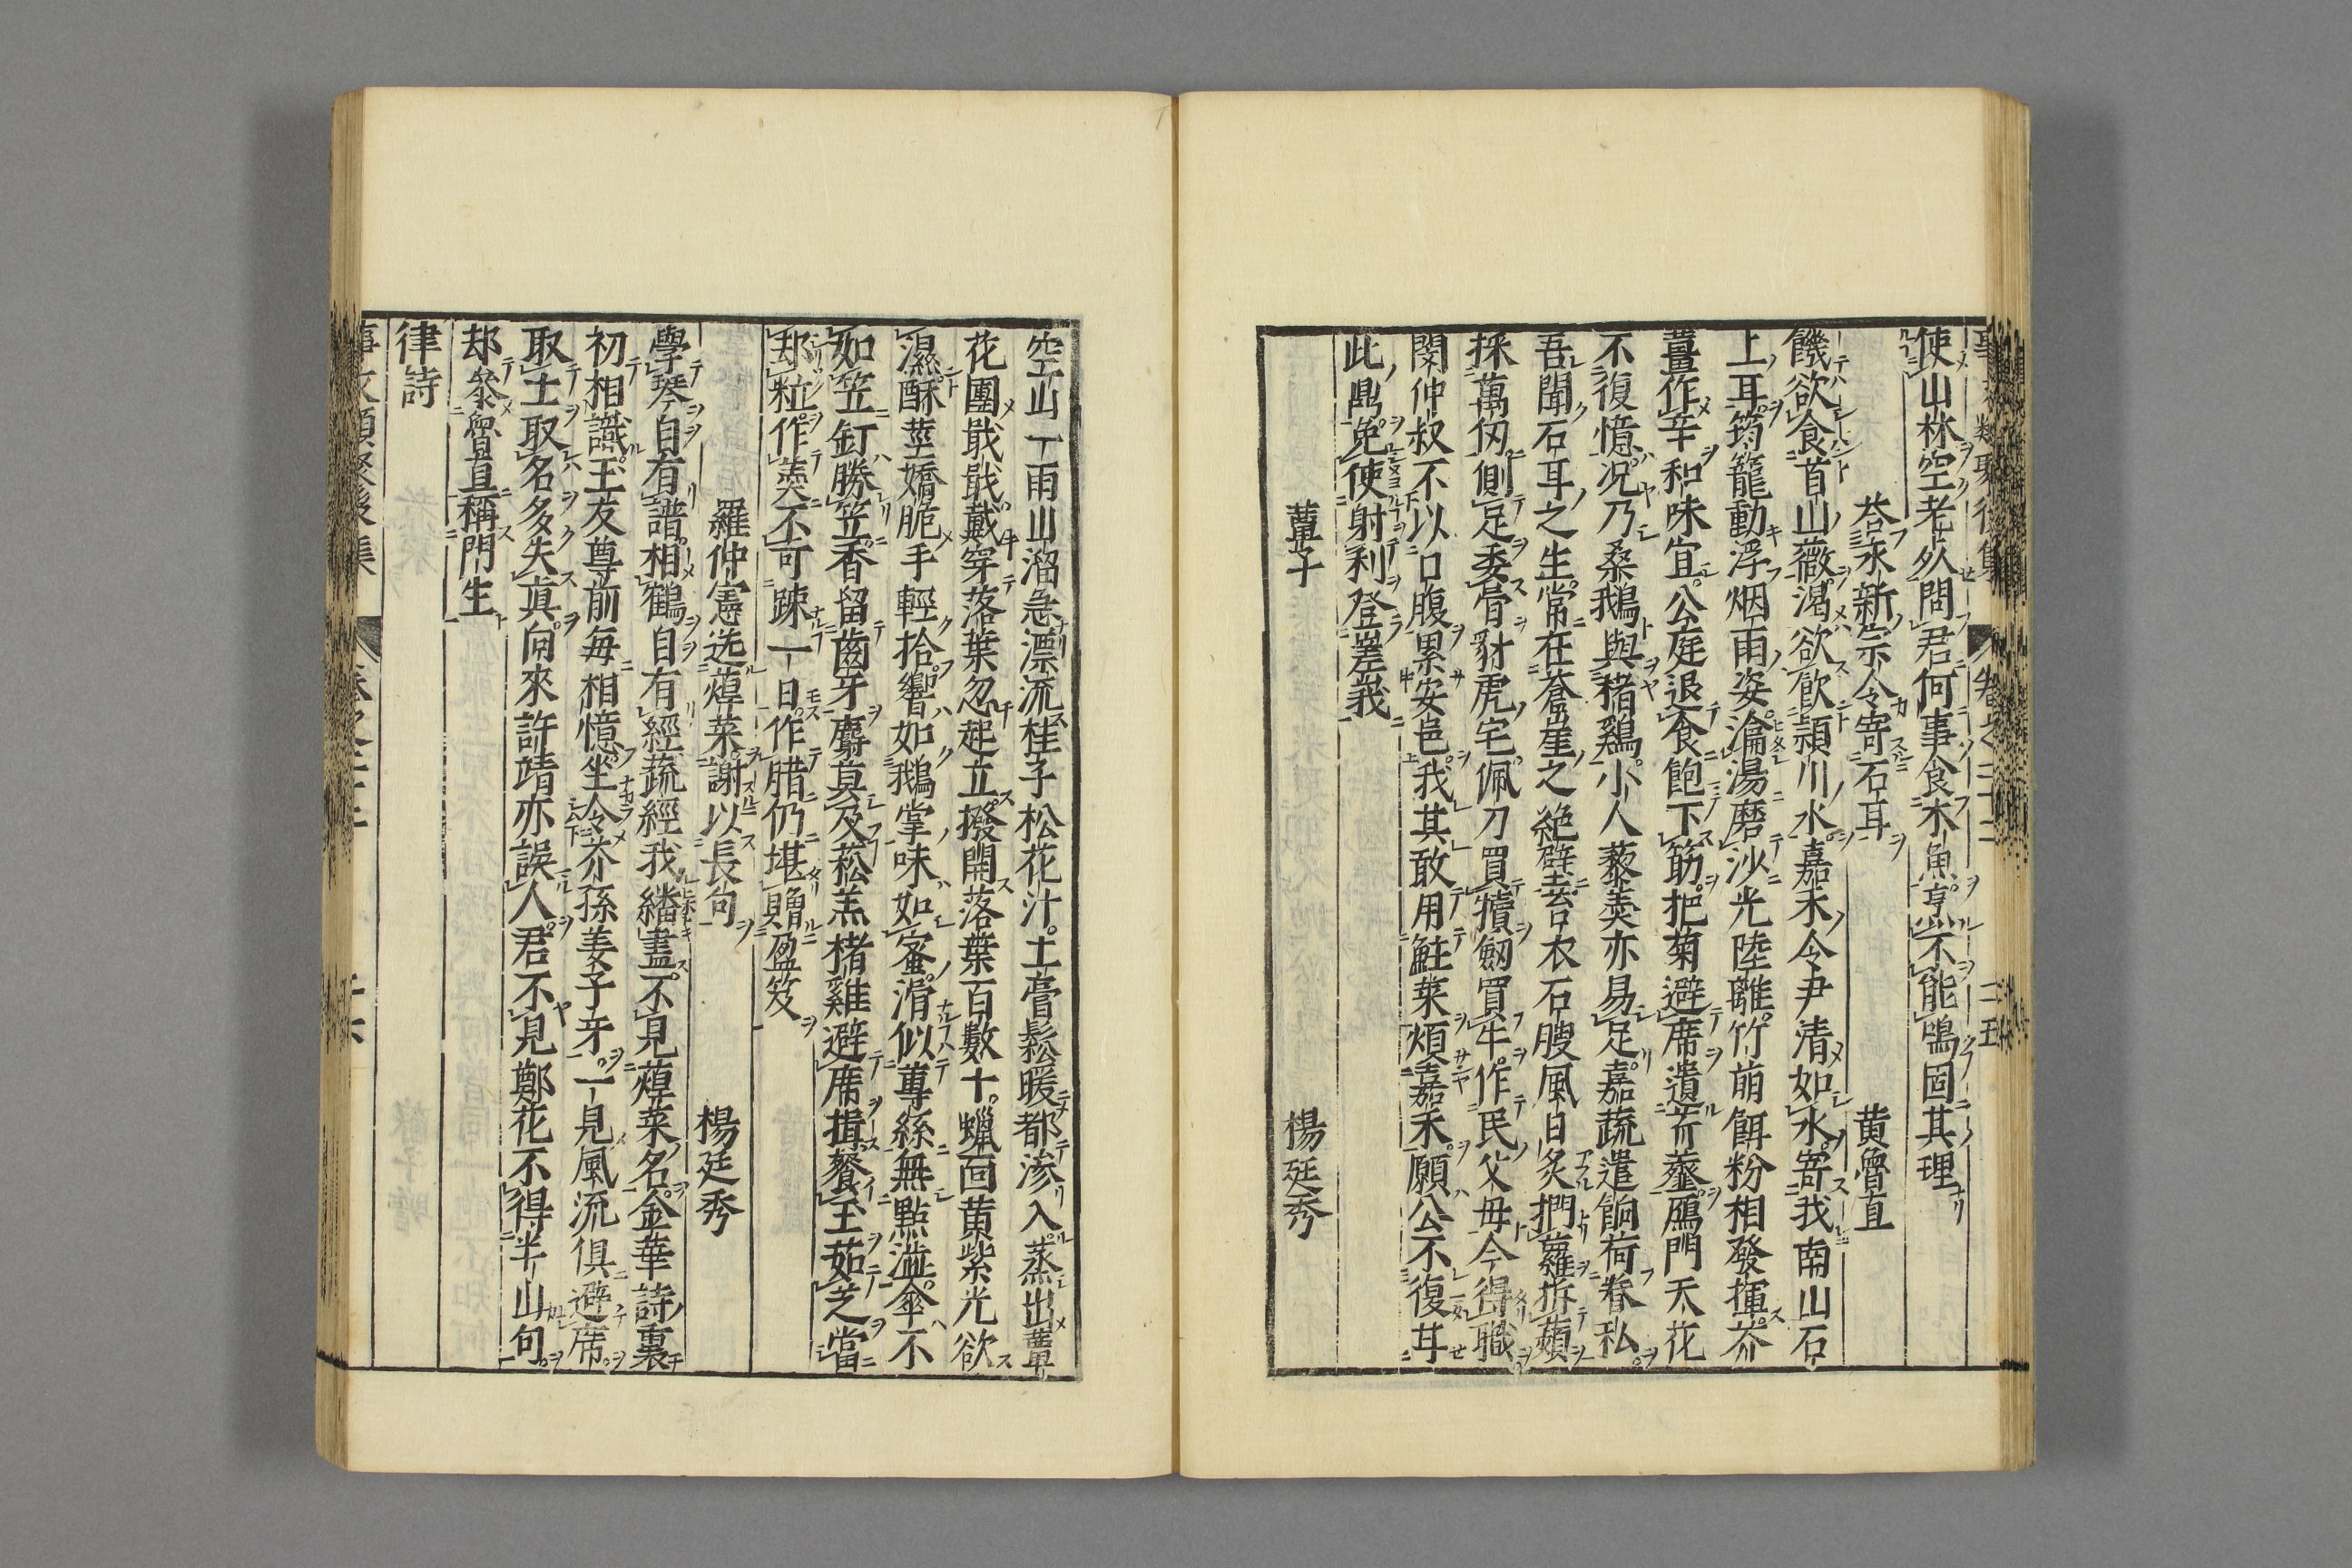 使山林空老死問君何事食木魚烹㱔不能鳴固其理
荅永新宗令寄石耳 黄魯直
饑欲食首山薇渴欲飮潁川水嘉禾令尹清如氷寄我南山石
上耳筠籠動浮烟雨姿瀹湯磨沙光陸離竹萌餌粉相發揮芥
薑作辛和味宜公庭退食飽下筯把菊避席遺萍虀鴈門天花
不復憶况乃桑鵝與楮鷄小人藜羮亦易足嘉蔬遣餉荷眷私
吾聞石耳之生常在蒼崖之絶壁苔衣石腴風日炙捫蘿挀
採萬仭側足委骨豺虎宅佩刀買犢劒買牛作民父母今得職
閔仲叔不以口腹累安邑我其敢用鮭菜煩嘉禾願公不復甘
此鼎免使射利登嵳峩
蕈子 楊廷秀
空山一雨山溜急漂流桂子松花汁土膏鬆暖都滲入蒸出蕈
花團戢戢戴穿落葉忽起立撥開落葉百數十蠟面黄紫光欲
濕酥莖嬌脆手輕拾響如鵝掌味如蜜滑似蓴絲無點澁傘不
如笠釘勝笠香留齒牙麝莫及菘羔楮雞避席揖餐玉茹芝當
却粒作羮不可踈一日作腊仍堪贈盈笈
羅仲憲送蔊菜謝以長句 楊廷秀
學琴自有譜相鶴自有經蔬經我繙盡不見蔊菜名金華詩裏
初相識玉友尊前每相憶坐令芥孫姜子牙一見風流俱避席
取士取名多失眞向來許靖亦誤人君不見鄭花不得半山句
却參魯直稱門生
律詩